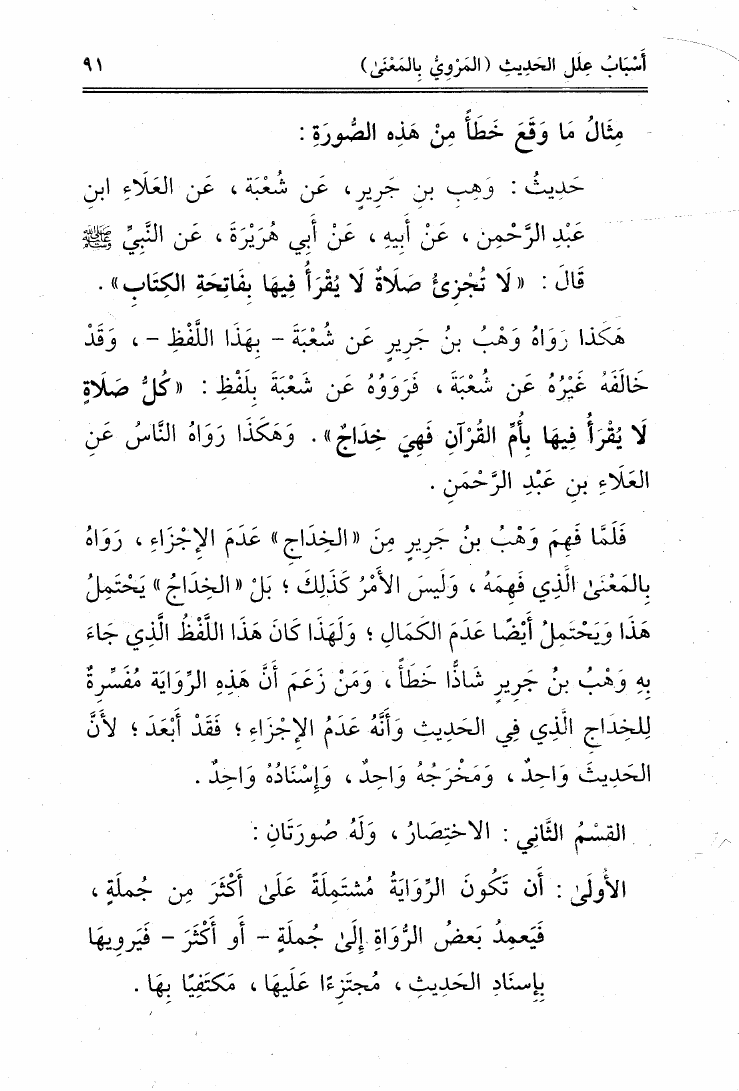 أَسْبَابُ عِلَلِ الحَدِيثِ (المَرْوِيُّ بِالمَعْنَىٰ) ٩١
مِثَالُ مَا وَقَعَ خَطَأً مِنْ هَذِه الصُّورَةِ :
حَدِيثُ : وَهبِ بنِ جَرِيرٍ، عَن شُعْبَةَ، عَنِ العَلَاءِ ابنِ
عَبْدِ الرَّحْمنِ، عَنْ أَبِيهِ، عَنْ أَبِي هُرَيْرَةَ، عَنِ النَّبِيِّ ﷺ
قَالَ : «لَا تُجْزِئُ صَلَاةٌ لَا يُقْرَأُ فِيهَا بِفَاتِحَةِ الكِتَابِ» .
هَكَذا رَوَاهُ وَهْبُ بنُ جَرِيرٍ عَن شُعْبَةَ – بِهَذَا اللَّفْظِ –، وَقَدْ
خَالَفَهُ غَيْرُهُ عَن شُعْبَةَ، فَرَوَوْهُ عَن شُعْبَةَ بِلَفْظِ : «كُلُّ صَلَاةٍ
لَا يُقْرَأُ فِيهَا بِأُمِّ القُرْآنِ فَهِيَ خِدَاجٌ» . وَهَكَذَا رَوَاهُ النَّاسُ عَنِ
العَلَاءِ بنِ عَبْدِ الرَّحْمَنِ .
فَلَمَّا فَهِمَ وَهْبُ بنُ جَرِيرٍ مِنَ «الخِدَاجِ» عَدَمَ الإِجْزَاءِ، رَوَاهُ
بِالمَعْنَىٰ الَّذِي فَهِمَهُ، وَلَيسَ الأَمْرُ كَذَلِكَ؛ بَلْ «الخِدَاجُ» يَحْتَمِلُ
هَذَا وَيَحْتَمِلُ أَيْضًا عَدَمَ الكَمَالِ؛ وَلِهَذَا كَانَ هَذَا اللَّفْظُ الَّذِي جَاءَ
بِهِ وَهْبُ بنُ جَرِيرٍ شَاذًّا خَطَأً، وَمَنْ زَعَمَ أَنَّ هَذِهِ الرِّوَايَةَ مُفَسِّرَةٌ
لِلخِدَاجِ الَّذِي فِي الحَدِيثِ وَأَنَّهُ عَدَمُ الإِجْزَاءِ؛ فَقَدْ أَبْعَدَ؛ لأَنَّ
الحَدِيثَ وَاحِدٌ، وَمَخْرَجُهُ وَاحِدٌ، وَإِسْنَادُهُ وَاحِدٌ .
القِسْمُ الثَّانِي : الاختِصَارُ، وَلَهُ صُورَتَانِ :
الأُولَىٰ : أَن تَكُونَ الرِّوَايَةُ مُشتَمِلَةً عَلَىٰ أَكْثَرَ مِن جُملَةٍ،
فَيَعمِدُ بَعضُ الرُّوَاةِ إِلَىٰ جُملَةٍ – أَو أَكْثَرَ – فَيَرويهَا
بِإِسنَادِ الحَدِيثِ، مُجتَزِءًا عَلَيهَا، مَكتَفِيًا بِهَا .